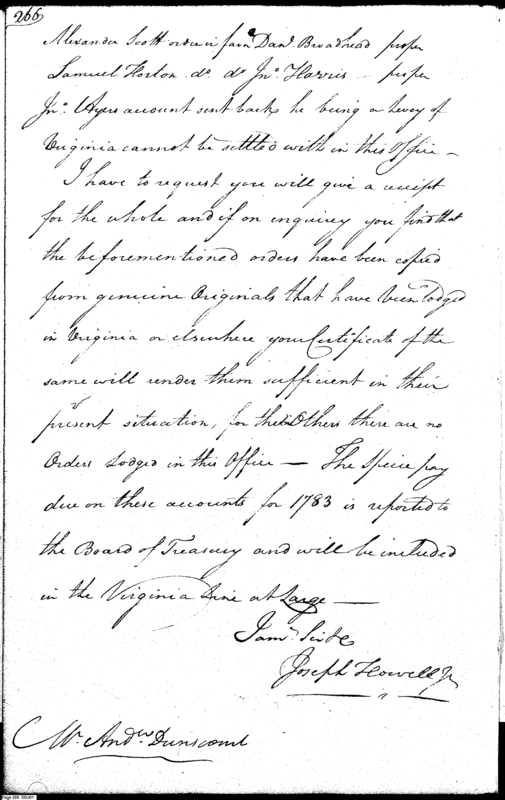 266
Alexander Scott order in favr Danl. Broadhead proper
Samuel Horton do. do. Jno. Harris — proper
Jno. Ayers account sent back he being a Levy of
Virginia cannot be settled with in this Office —
I have to request you will give a receipt
for the whole and if on enquiry you find that
the beforementioned orders have been copied
from genuine Originals that have been lodged
in Virginia or elsewhere your Certificate of the
same will render them sufficient in their
present situation, for the Others there are no
Orders Lodged in this Office — The Specie pay
due on these accounts for 1783 is reported to
the Board of Treasury and will be included
in the Virginia Line at Large —
I am. Sir &c
Joseph Howell Jr
Mr. Andw. Dunscomb